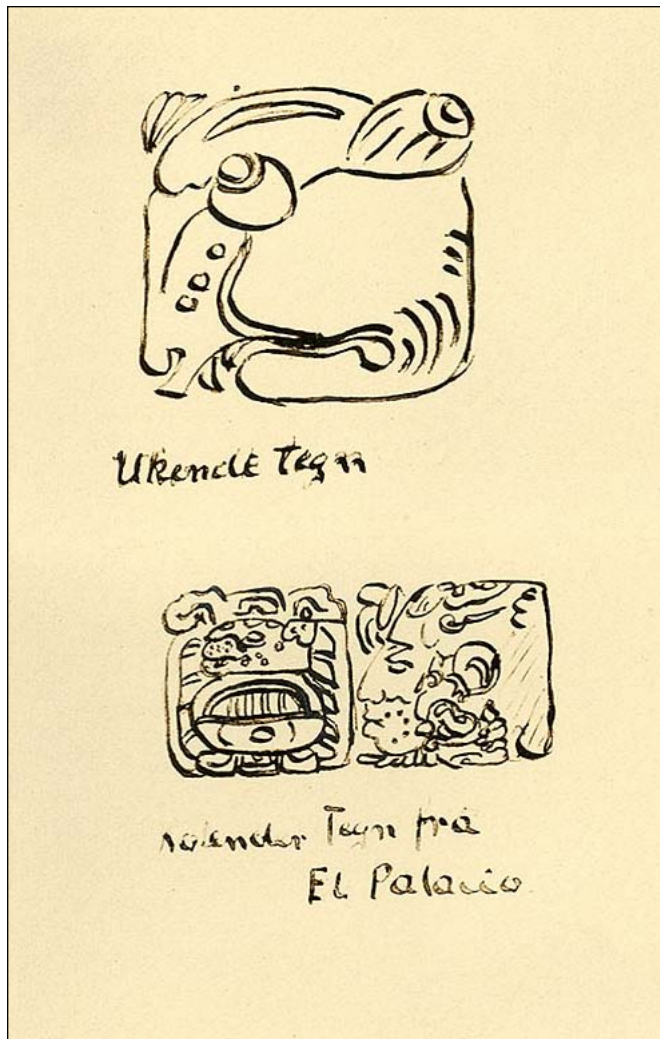 Ukendt Tegn
Kalender Tegn fra
El Palacio.